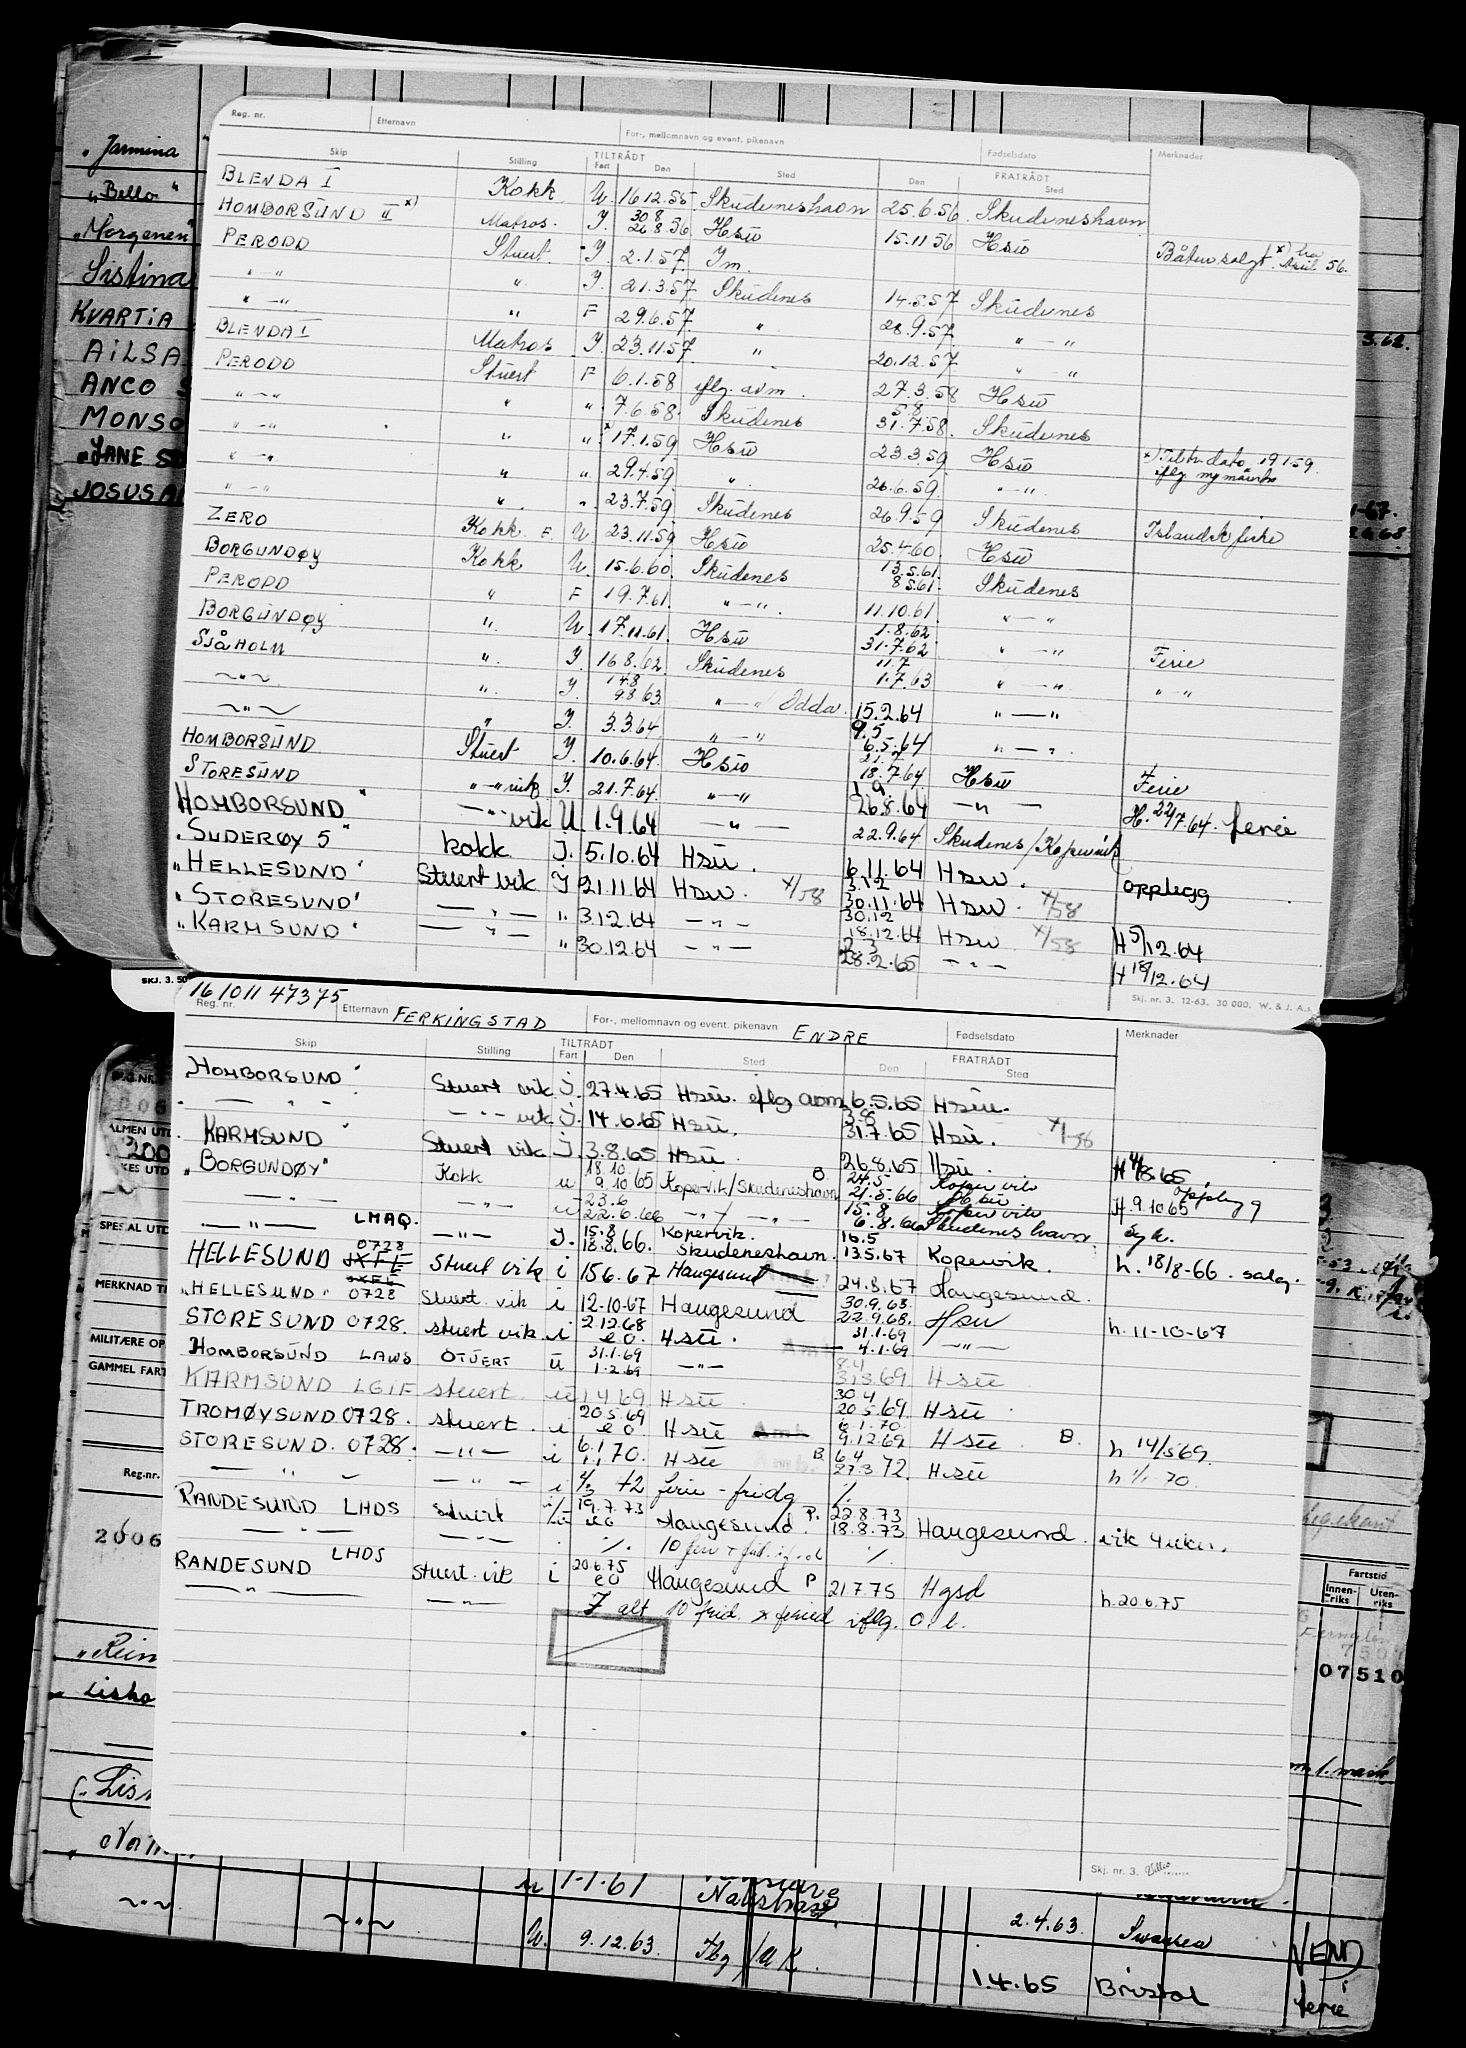 Reg. nr. Etternavn For-, mellomnavn og event. pikenavn Fødselsdato Merknader
Skip Stilling TILTRÅDT FRATRÅDT
Fart Den Sted Den Sted
BLENDA I Kokk U. 16 12.55 Skudeneshavn 25.6.56 Skudeneshavn
HOMBORSUND II x) Matros. J. 30 8 26 8.56 Hsu 15.11 56 Hsu Båten solgt x) April 56.
PERODD Stuert J. 2.1.57. Im. 14.5.57 Skudenes
" — " " J. 21.3.57 Skudenes 28.9.57 " — "
" — " " F 29.6.57. " 20.12.57 " — "
BLENDA I Matros J. 23.11.57 " 27.3.58 Hsu
PERODD Stuert F 6.1.58 iflg. avm. 5.8 31.7.58. Skudenes
" — " " " 7.6.58. Skudenes 23.3.59 Hsu x) Tiltr. dato 19 1.59.
" — " " " x 17.1.59 Hsu 26.6.59. " — " iflg. ny mønstr
" — " " " 29.4.59 " 26.9.59 Skudenes Islandsk fiske
" — " " " 23.7.59. Skudenes 25.4.60. Hsu
ZERO Kokk. F. U 23.11.59 Hsu 13.5.61. 8 5.61. Skudenes
BORGUNDØY Kokk U. 15.6.60. Skudenes 11.10.61 " — "
PERODD " F 19.7.61. " — ". 1.8.62 31.7.62 " — " Ferie
BORGUNDØY " U. 17.11.61. Hsu 11.7 1.7.63 " — " " — "
SJÅHOLM " J. 16 8.62. Skudenes 15.2.64 " — "
~ " ~ " J. 14.8 9.8 63. " — " Odda. 9.5 6.5.64 " — ".
~ " ~ " J. 3.3.64. " — " 21.7 18.7.64 Hsu Ferie
HOMBORSUND Stuert J. 10.6.64. Hsu 1.9. 26.8.64 — " — H. 22/7.64. ferie
STORESUND " — " vik J. 21.7.64. " — " 22.9.64 Skudenes/Kopervik
HOMBORSUND — " — vik U. 1.9.64 — " — 6.11.64 Hsu. opplegg
"SUDERØY 5" kokk J. 5.10.64 Hsu. 3.12 30.11.64 Hsu. x/58
"HELLESUND" Stuert vik J 21.11.64 Hsu. x/58 30.12 18.12.64 Hsu x/58 H 5/12.64
"STORESUND" — " — " 3.12.64 — " — 2.3 28.2.65 — " — H 18/12.64
"KARMSUND" — " — " 30.12.64 — " —
SKJ. 3. 50 Skj. nr. 3. 12-63. 30 000. W. & J. A.s.
16/011 47375
Reg. nr. Etternavn FERKINGSTAD For-, mellomnavn og event. pikenavn ENDRE Fødselsdato Merknader
Skip Stilling TILTRÅDT FRATRÅDT
Fart Den Sted Den Sted
"HOMBORSUND" Stuert vik J. 27.4.65 Hsu. iflg avm. 6.5.65 Hsu.
— " — — " — vik J. 14.6.65 Hsu. 3.8 31.7.65 Hsu. x/-58
KARMSUND Stuert vik J 3.8.65 Hsu. 26.8.65 Hsu. H 4/8.65 opplegg
"BORGUNDØY" Kokk u 18.10 9.10 65 Kopervik/Skudeneshavn B 24.5 21.5.66 Kopervik H. 9.10 65
— " — — " — u 23.6 22.6.66 — " — / — " — 15.8 6.8.66 Kopervik Skudeneshavn Syk.
— " — LMAQ. — " — J. 15.8 18.8.66. Kopervik. Skudeneshavn. 16.5 13.5.67 Kopervik. h. 18/8-66. salg.
HELLESUND 0728 JXFE Stuert vik i 15.6.67 Haugesund 24.8.67 Haugesund.
"HELLESUND" 0728 Stuert. vik i 12-10-67 Haugesund 30.9.68. 22.9.68. Hsu h. 11-10-67
STORESUND 0728. stuert vik. i 2.12.68 e o. Hsu. 31.1-69 4.1-69 — " —
HOMBORSUND LAWS STUERT u 31.1.69 1.2.69 — " — 8.4 31.3.69 Hsu
KARMSUND LGIF stuert. u 1.4 69 Hsu. 30.4 20.5.69 Hsu.
TROMØYSUND 0728. stuert. i 20.5.69 e o Hsu 6.1.70. 9.12.69 Hsu. B. h 14/5 69.
STORESUND. 0728. — " — i 6.1.70. Hsu B. 6.4 27.3 72. Hsu h 1/1-70.
— " — — " — i 4/3 72 ferie - fridg %
RANDESUND LHDS stuert i/u 19.7.73 e o Haugesund. P. 22.8.73 18.8.73 Haugesund. vik 4 uker.
— " — — " — %. 10 %
RANDESUND LHDS Stuert. vik i 20.6.75 e o Haugesund P 21.7.75 Hgsd h. 20.6.75
— " — — " — I alt 10 frid. x feried iflg. O. l.
Skj. nr. 3.
"Jarmina
"Bello"
"Morgenen"
Sistina
KVARTIA
AILSA
ANCO S
MONSO
"JANE S
JOSUSA
3.62.
1-67.
26.68.
SPESIAL UTD
MERKNAD T
MILITÆRE OP
GAMMEL FART
Reg.-nr.
2006
"Rein
Lisho
(" Lism
Norm
Fartstid
Innen-riks Uten-riks
07510
om 1. mask
u 1-1-61
~ " ~ ~ " ~ U. 9.12.63. Hbg/U K. 2.4.63. Swansea VEND
1.4.65 Bristol ferie